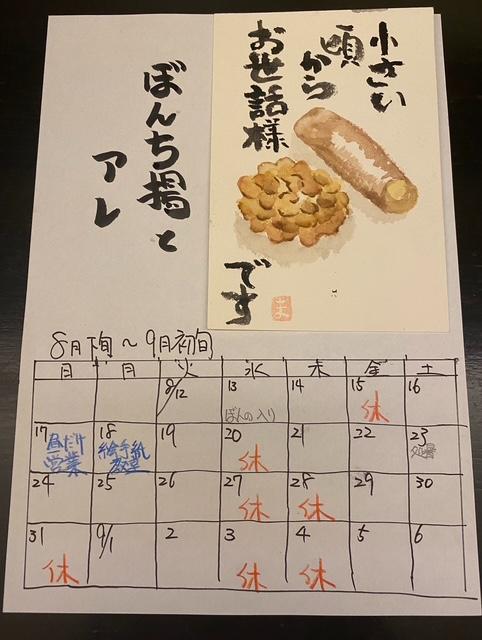 小さい
頃から
お世話様
です
ぼんち揚と
アレ
8月下旬～9月初旬
日 月 火 水 木 金 土
8/12 13 14 15 16
ぼんの入り 休
17 18 19 20 21 22 23
昼だけ 絵手紙 休 処暑
営業 教室
24 25 26 27 28 29 30
休 休
31 9/1 2 3 4 5 6
休 休 休